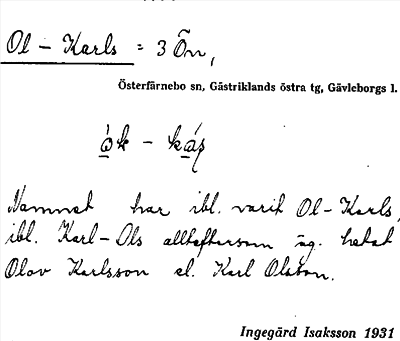 Ol-Karls = 3 Ön,
Österfärnebo sn, Gästriklands östra tg, Gävleborgs l.
Namnet har ibl. varit Ol-Karls,
ibl. Karl-Ols allteftersom äg. hetat
Olov Karlsson el. Karl Olsson.
Ingegärd Isaksson 1931